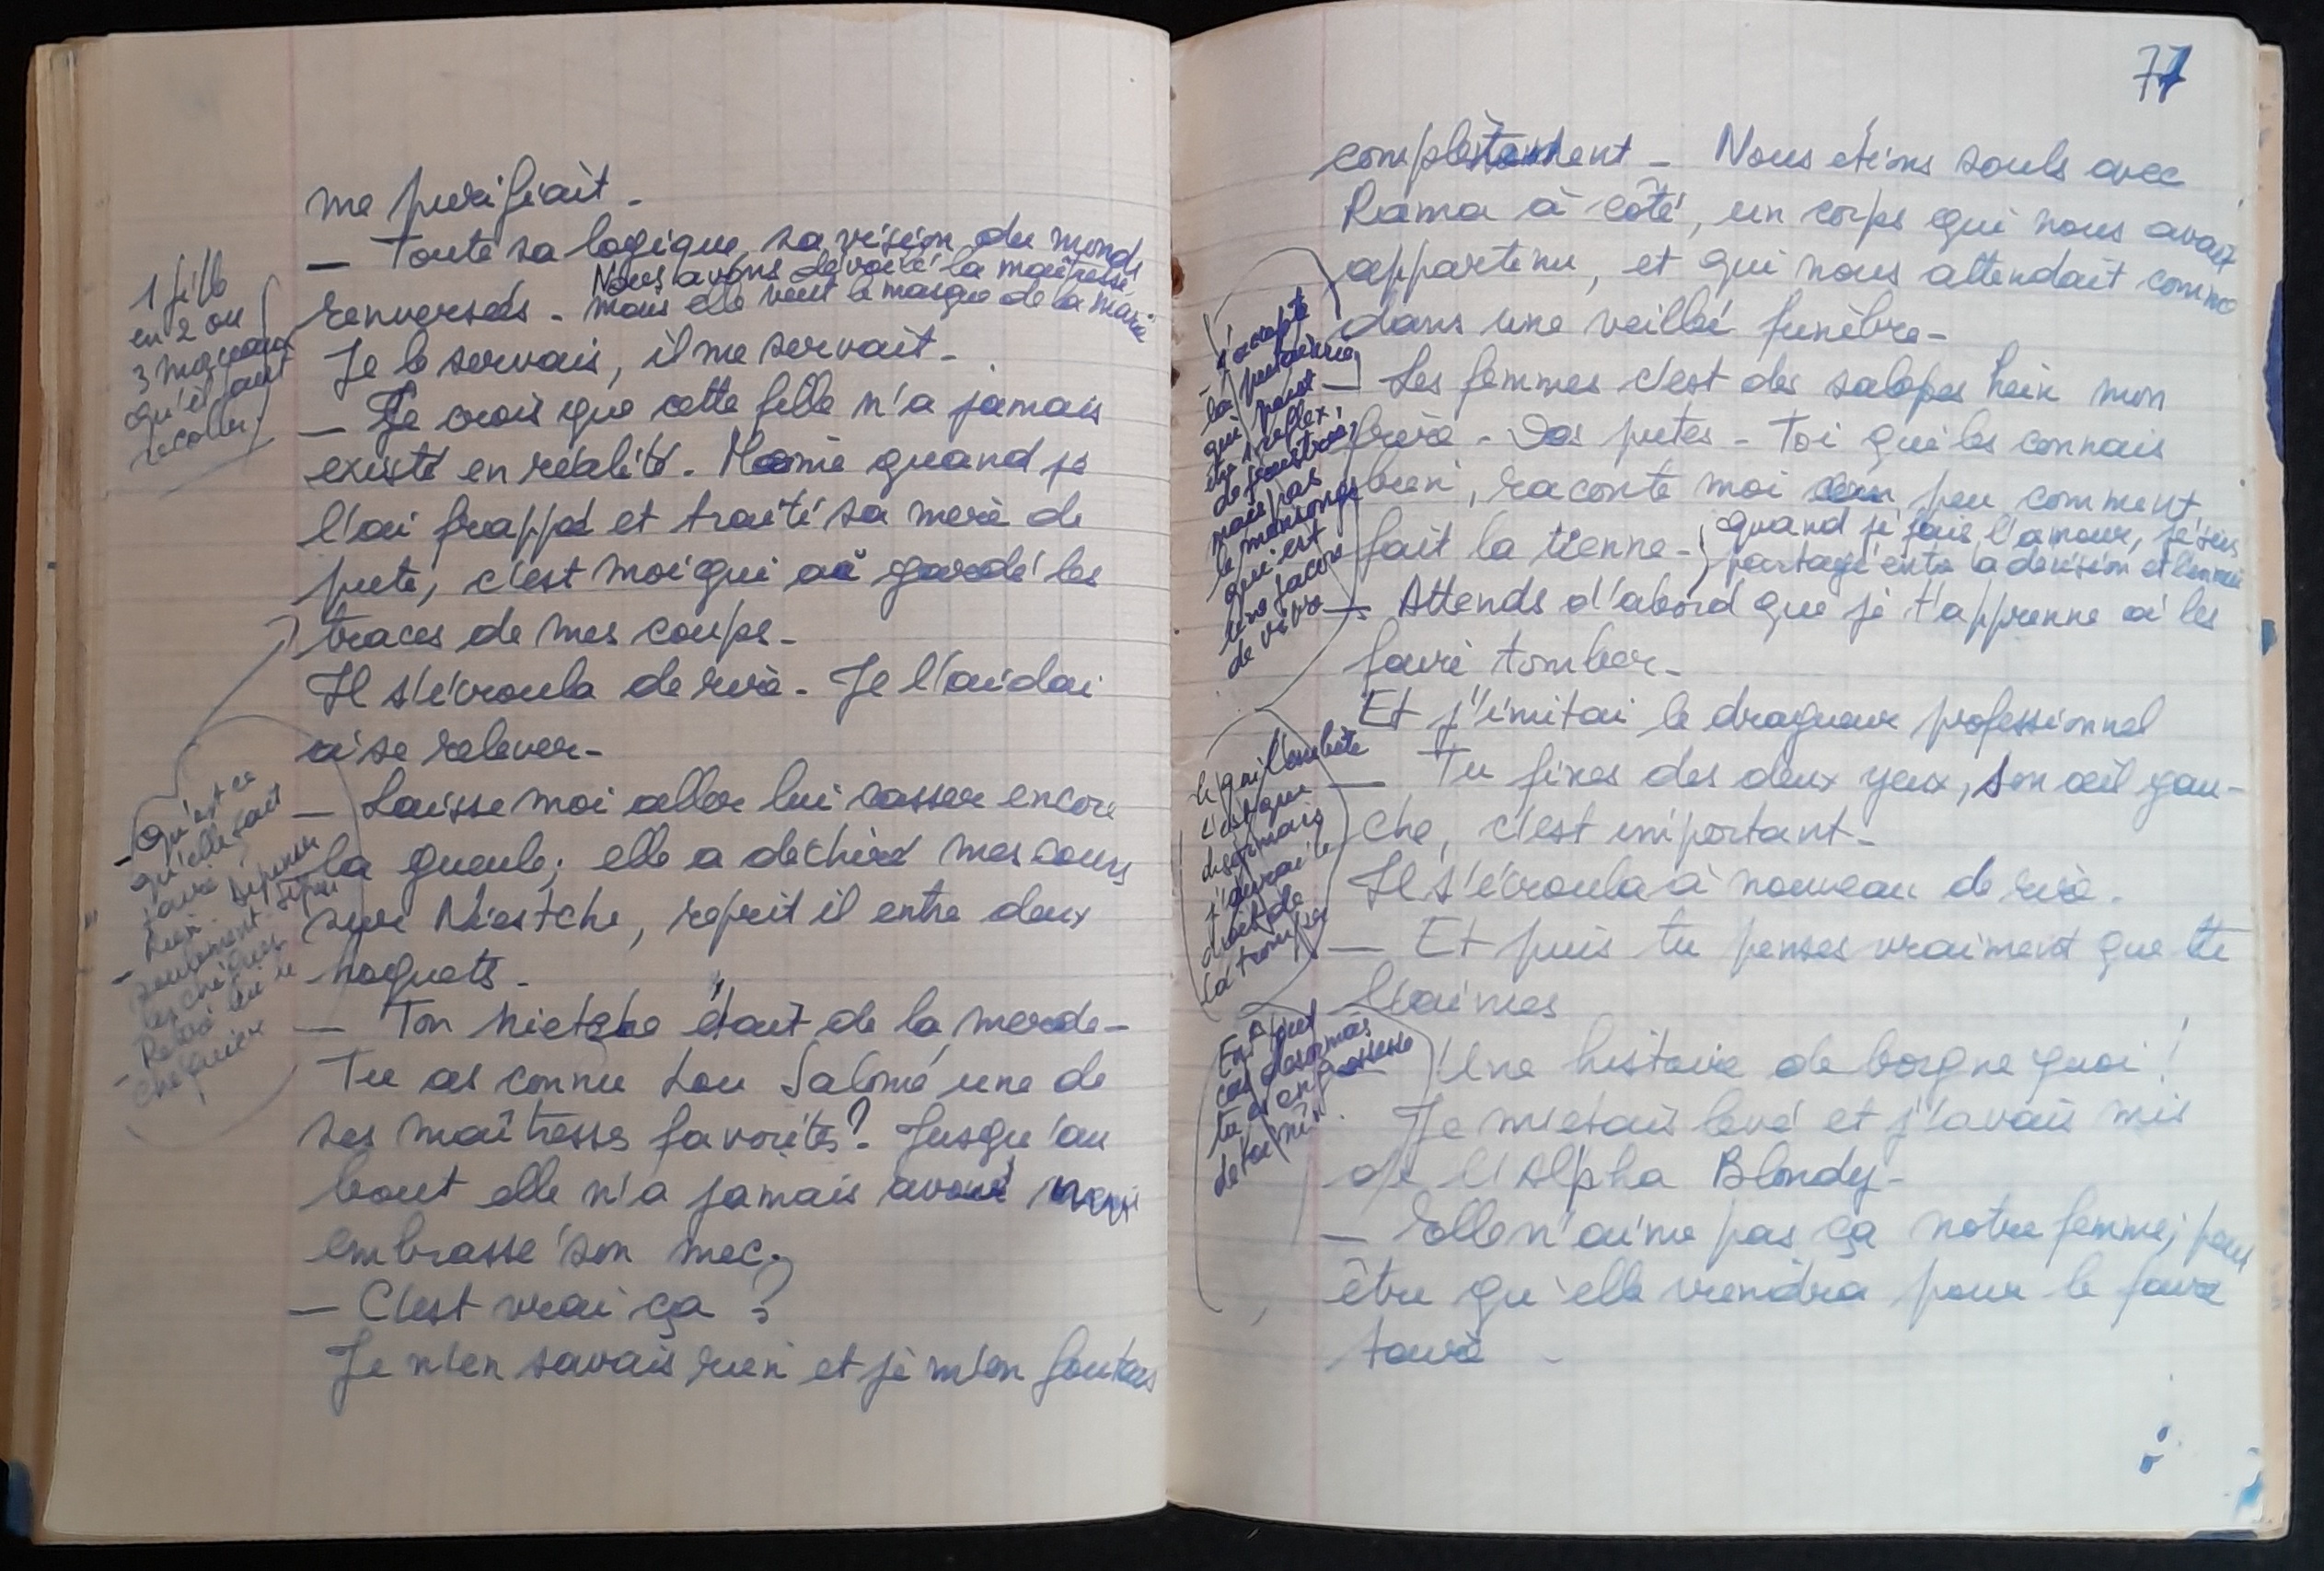 me purifiait -
- Toute sa logique, sa vision du monde
Nous avons dévoilé la maîtresse,
mais elle veut le masque de la mariée
renversés -
Je le servais, il me servait -
1 fille
en 2 ou
3 morceaux
qu'il faut
recoller.
- Je crois que cette fille n'a jamais
existé en réalité. Même quand je
l'ai frappé et traité sa merè de
pute, c'est moi qui ai gardé les
traces de mes coups -
Il s'écroula de rire - Je l'aidai
à se relever -
- Qu'est ce
qu'elle sait
faire
- Rien
seulement
les chéquier
- Reste un
chéquier
- Laisse moi aller lui casser encore
la gueule; elle a dechiré mes cours
sur Niestche, reprit il entre deux
hoquets -
- Ton nietche était de la merde -
Tu as connu Lou Salomé une de
ses maîtresses favorites? Jusqu'au
bout elle n'a jamais avoué avoir
embrassé son mec.
- C'est vrai ça ?
Je n'en savais rien et je m'en foutais
77
complètement - Nous etions souls avec
Rama à côté, un corps qui nous avait
appartenu, et qui nous attendait comme
dans une veillée funèbre -
J'accepte
la putainerie
qui peut
être reflexe
de frustrée,
mais pas
le mensonge
qui est
une façon
de vivre
- Les femmes c'est des salopes hein mon
frère - Des putes - Toi qui les connais
bien, raconte moi un peu comment
fait la tienne -
quand je fais l'amour, je suis
partagé entre la derision et l'ennui
- Attends d'abord que je t'apprenne à les
faire tomber -
Et j'imitai le dragueur professionnel
- Tu fixes des deux yeux, son œil gau-
che, c'est important -
Il s'écroula à nouveau de rire.
Ce qui l'embête
c'est que
desormais
j'aurai le
droit de
la tromper
- Et puis tu penses vraiment que tu
l'aimes
En tout
cas desormais
tu es en possession
de toi
Une histoire de borgne quoi !
Je m'etais levé et j'avais mis
de l'Alpha Blondy -
- Elle n'aime pas ça notre femme; peut
être qu'elle viendra pour le faire
taire -